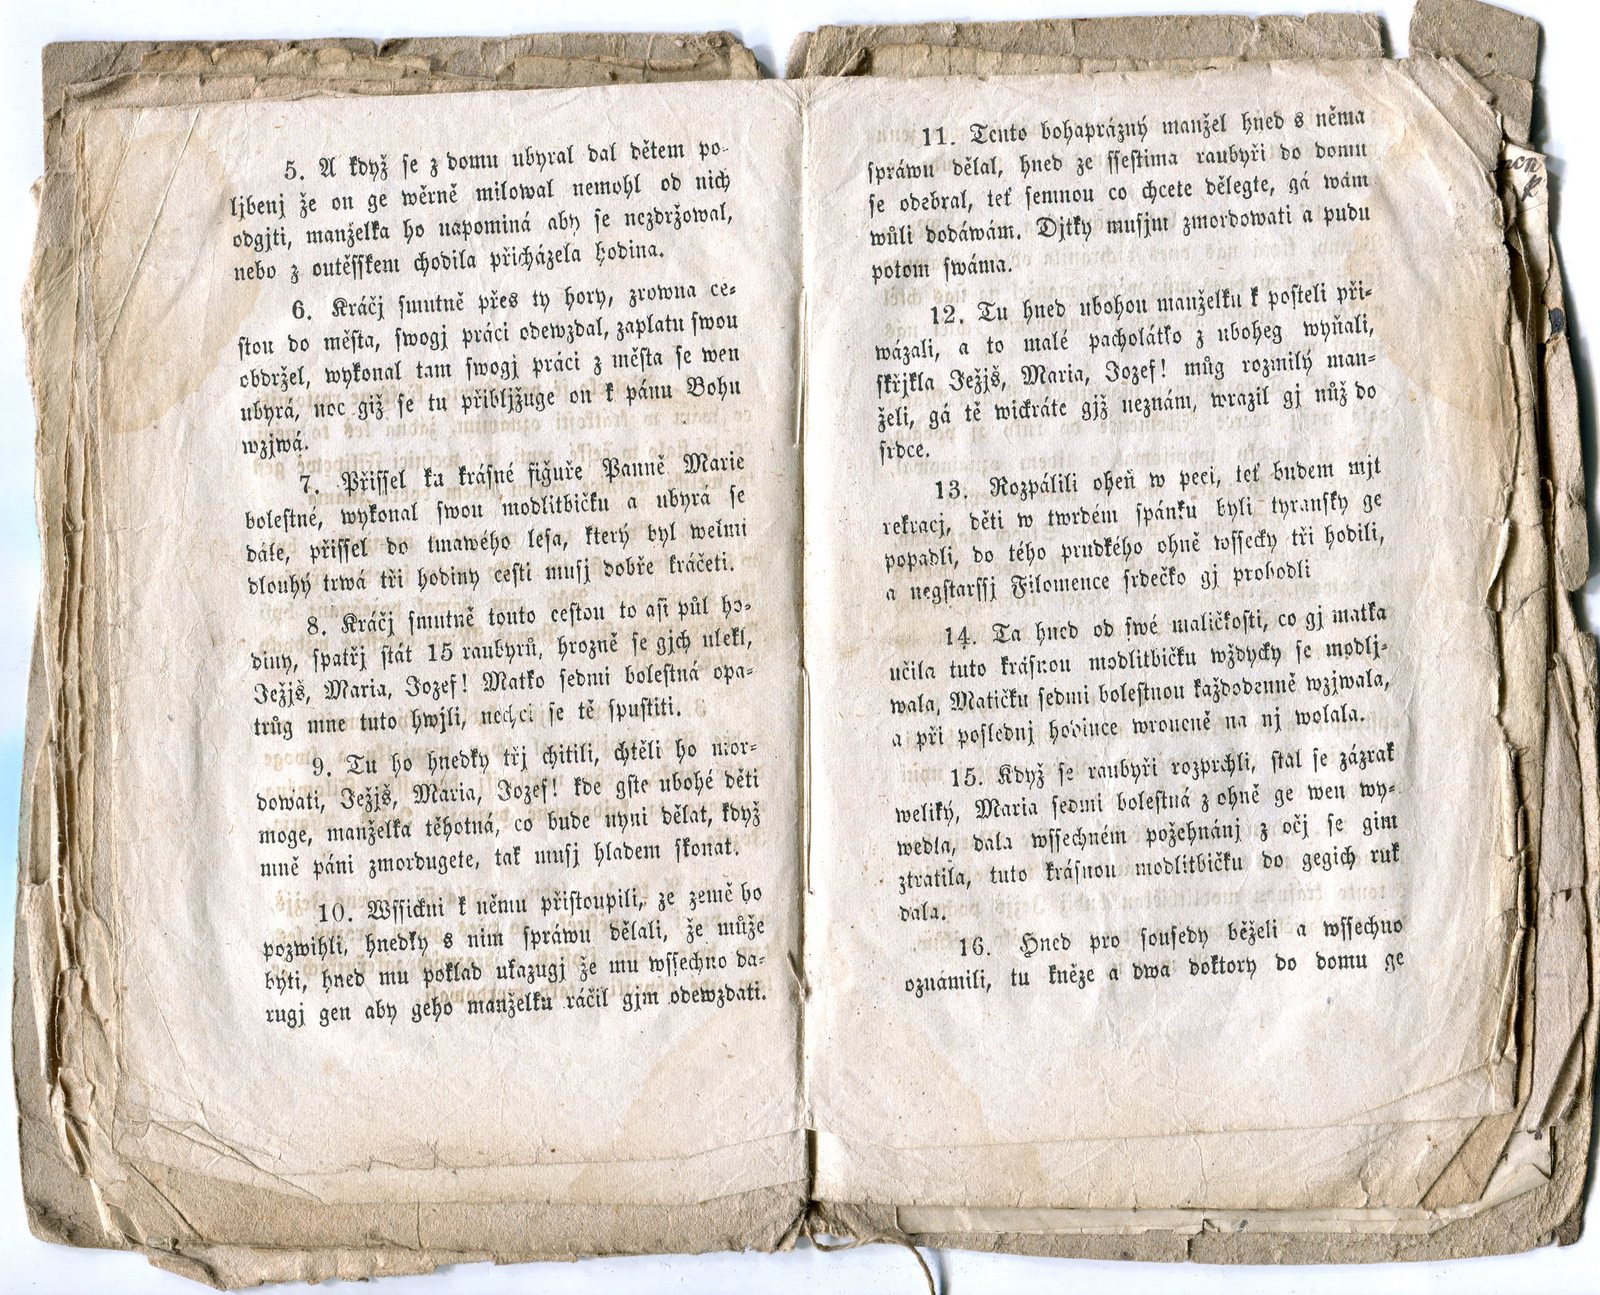 5. A když se z domu ubyral dal dětem po-
ljbenj že on ge wěrně milowal nemohl od nich
odgjti, manželka ho napominá aby se nezdržowal,
nebo z outěsskem chodila přicházela hodina.
6. Kráčj smutně přes ty hory, zrowna ce-
stou do města, swogj práci odewzdal, zaplatu swou
obdržel, wykonal tam swogj práci z města se wen
ubyrá, noc giž se tu přibljžuge on k pánu Bohu
wzjwá.
7. Přissel ku krásné figuře Panně Marie
bolestné, wykonal swou modlitbičku a ubyrá se
dále, přissel do tmawého lesa, který byl welmi
dlouhý trwá tři hodiny cesti musj dobře kráčeti.
8. Kráčj smutně touto cestou to asi půl ho-
diny, spatřj stát 15 raubyrů, hrozně se gjch ulekl,
Ježjš, Maria, Jozef! Matko sedmi bolestná opa-
trůg mne tuto hwjli, nechci se tě spustiti.
9. Tu ho hnedky třj chitili, chtěli ho mor-
dowati, Ježjš, Maria, Jozef! kde gste ubohé děti
moge, manželka těhotná, co bude nyni dělat, když
mně páni zmordugete, tak musj hladem skonat.
10. Wssickni k němu přistoupili, ze země ho
pozwihli, hnedky s nim spráwu dělali, že může
býti, hned mu poklad ukazugj že mu wssechno da-
rugj gen aby geho manželku ráčil gjm odewzdati.
11. Tento bohaprázný manžel hned s něma
spráwu dělal, hned ze ssestima raubyři do domu
se odebral, teť semnou co chcete dělegte, gá wám
wůli dodáwám. Djtky musjm zmordowati a pudu
potom swáma.
12. Tu hned ubohou manželku k posteli při-
wázali, a to malé pacholátko z uboheg wyňali,
skřjkla Ježjš, Maria, Jozef! můg rozmilý man-
želi, gá tě wickráte gjž neznám, wrazil gj nůž do
srdce.
13. Rozpálili oheň w peci, teť budem mjt
rekracj, děti w twrdém spánku byli tyransky ge
popadli, do tého prudkého ohně wssecky tři hodili,
a negstarssj Filomence srdečko gj probodli
14. Ta hned od swé maličkosti, co gj matka
učila tuto krásnou modlitbičku wždycky se modlj-
wala, Matičku sedmi bolestnou každodenně wzjwala,
a při poslednj hodince wroucně na nj wolala.
15. Když se raubyři rozprchli, stal se zázrak
weliký, Maria sedmi bolestná z ohně ge wen wy-
wedla, dala wssechném požehnánj z očj se gim
ztratila, tuto krásnou modlitbičku do gegich ruk
dala.
16. Hned pro sousedy běželi a wssechno
oznámili, tu kněze a dwa doktory do domu ge